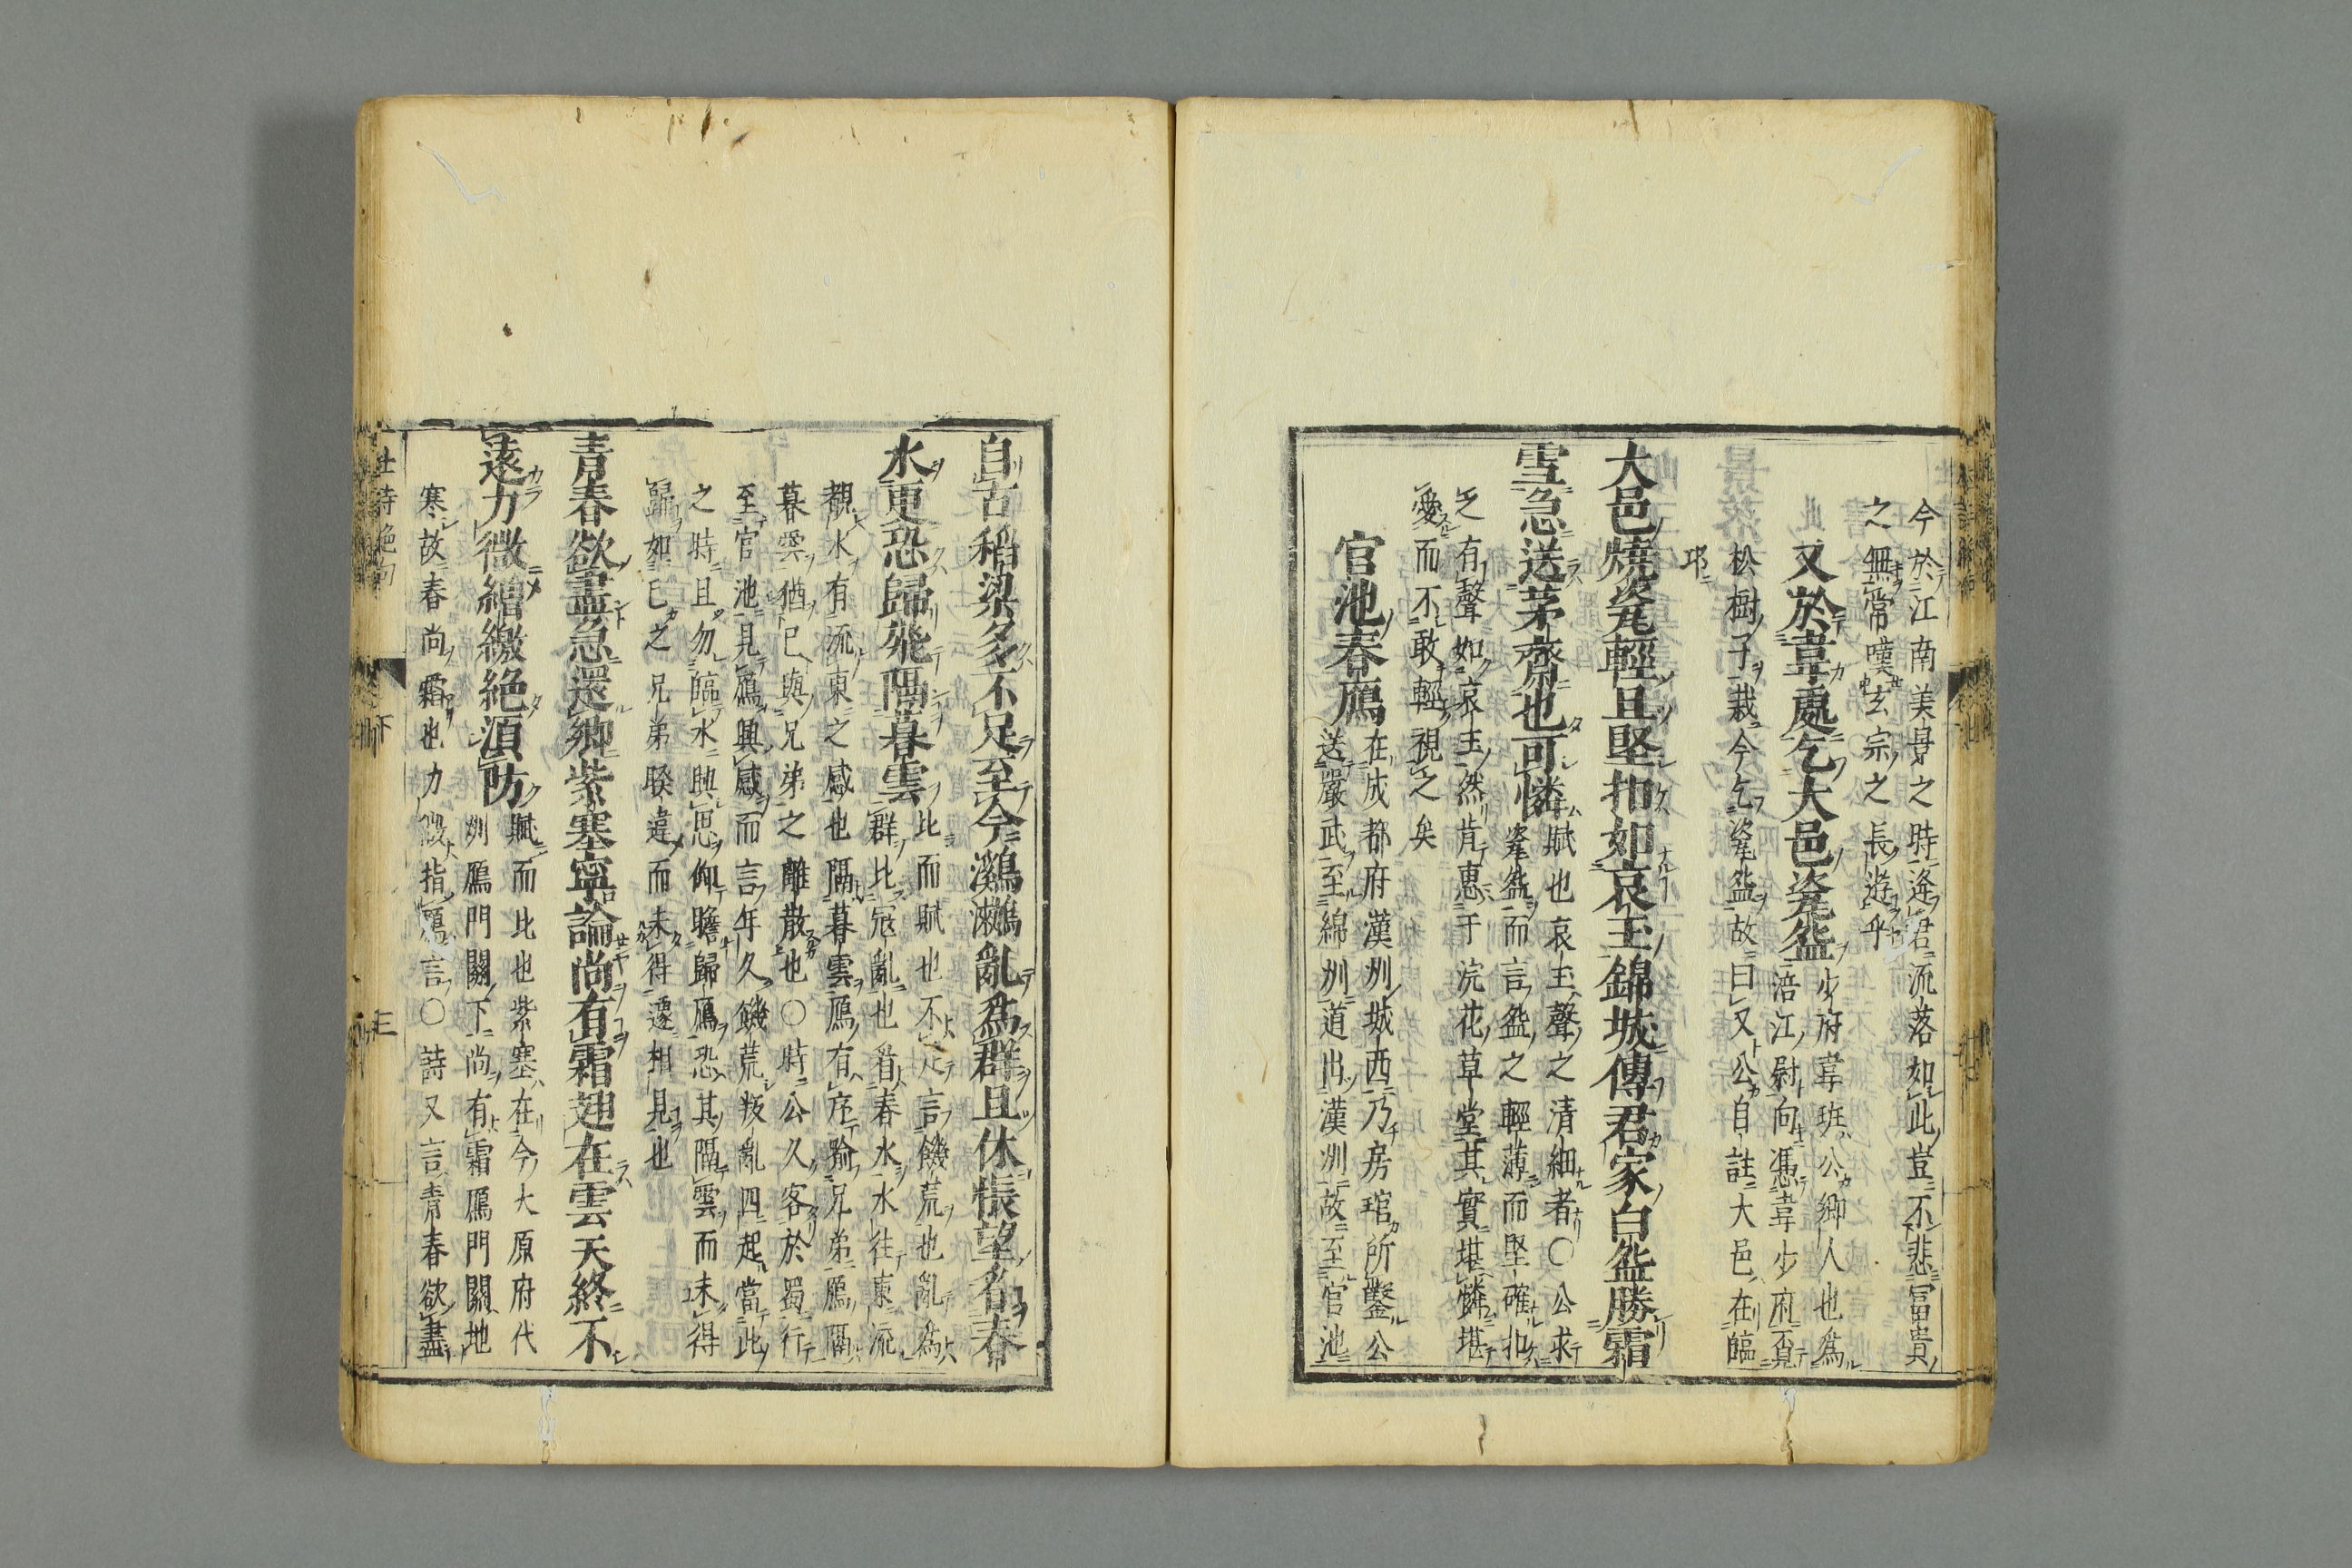 今於江南美景之時逢君流落如此豈不悲富貴
之無常嘆玄宗之長遊乎
又於韋處乞大邑瓷盌
少府韋班公卿人也為
涪江尉向憑韋少府覓
松樹子栽今乞瓷盌故曰又公自註大邑在臨
邛
大邑燒瓷輕且堅扣如哀玉錦城傳君家白盌勝霜
雪急送茅齋也可憐
賦也哀玉聲之清細者〇公求
瓷盌而言盌之輕薄而堅確扣
之有聲如哀玉然肯惠于浣花草堂其實堪憐堪
愛而不敢輕視之矣
官池春鴈
在成都府漢州城西乃房琯所鑿公
送嚴武至綿州道出漢州故至官池
自古稻粱多不足至今鸂鶒亂為群且休悵望看春
水更恐歸飛隔暮雲
比而賦也不足言饑荒也亂為
群比寇亂也看春水水往東流
觀水有流東之感也隔暮雲鴈有序喻兄弟鴈隔
暮雲猶已與兄弟之離散也〇時公久客於蜀行
至官池見鴈興感而言年久饑荒叛亂四起當此
之時且勿臨水興思仰瞻歸鴈恐其隔雲而未得
歸如已之兄弟睽違而未得還相見也
青春欲盡急還鄉紫塞寧論尚有霜翅在雲天終不
遠力微繒繳絕須防
賦而比也紫塞在今大原府代
州鴈門關下尚有霜鴈門關地
寒故春尚霜也力微指鴈言〇詩又言青春欲盡
杜詩絕句
下
三